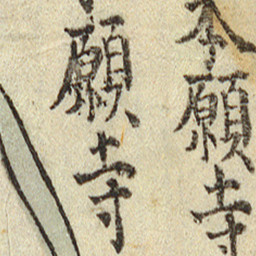 本願寺
願寺